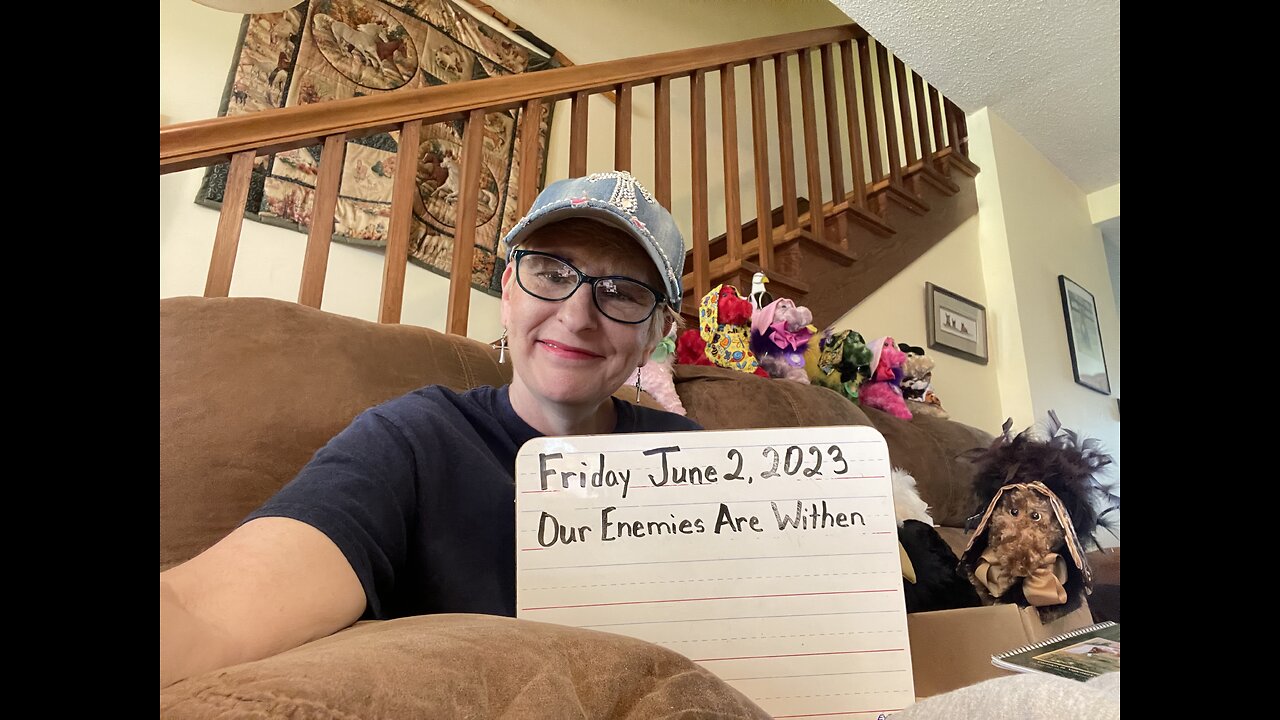 Friday June 2, 2023
Our Enemies Are Withen